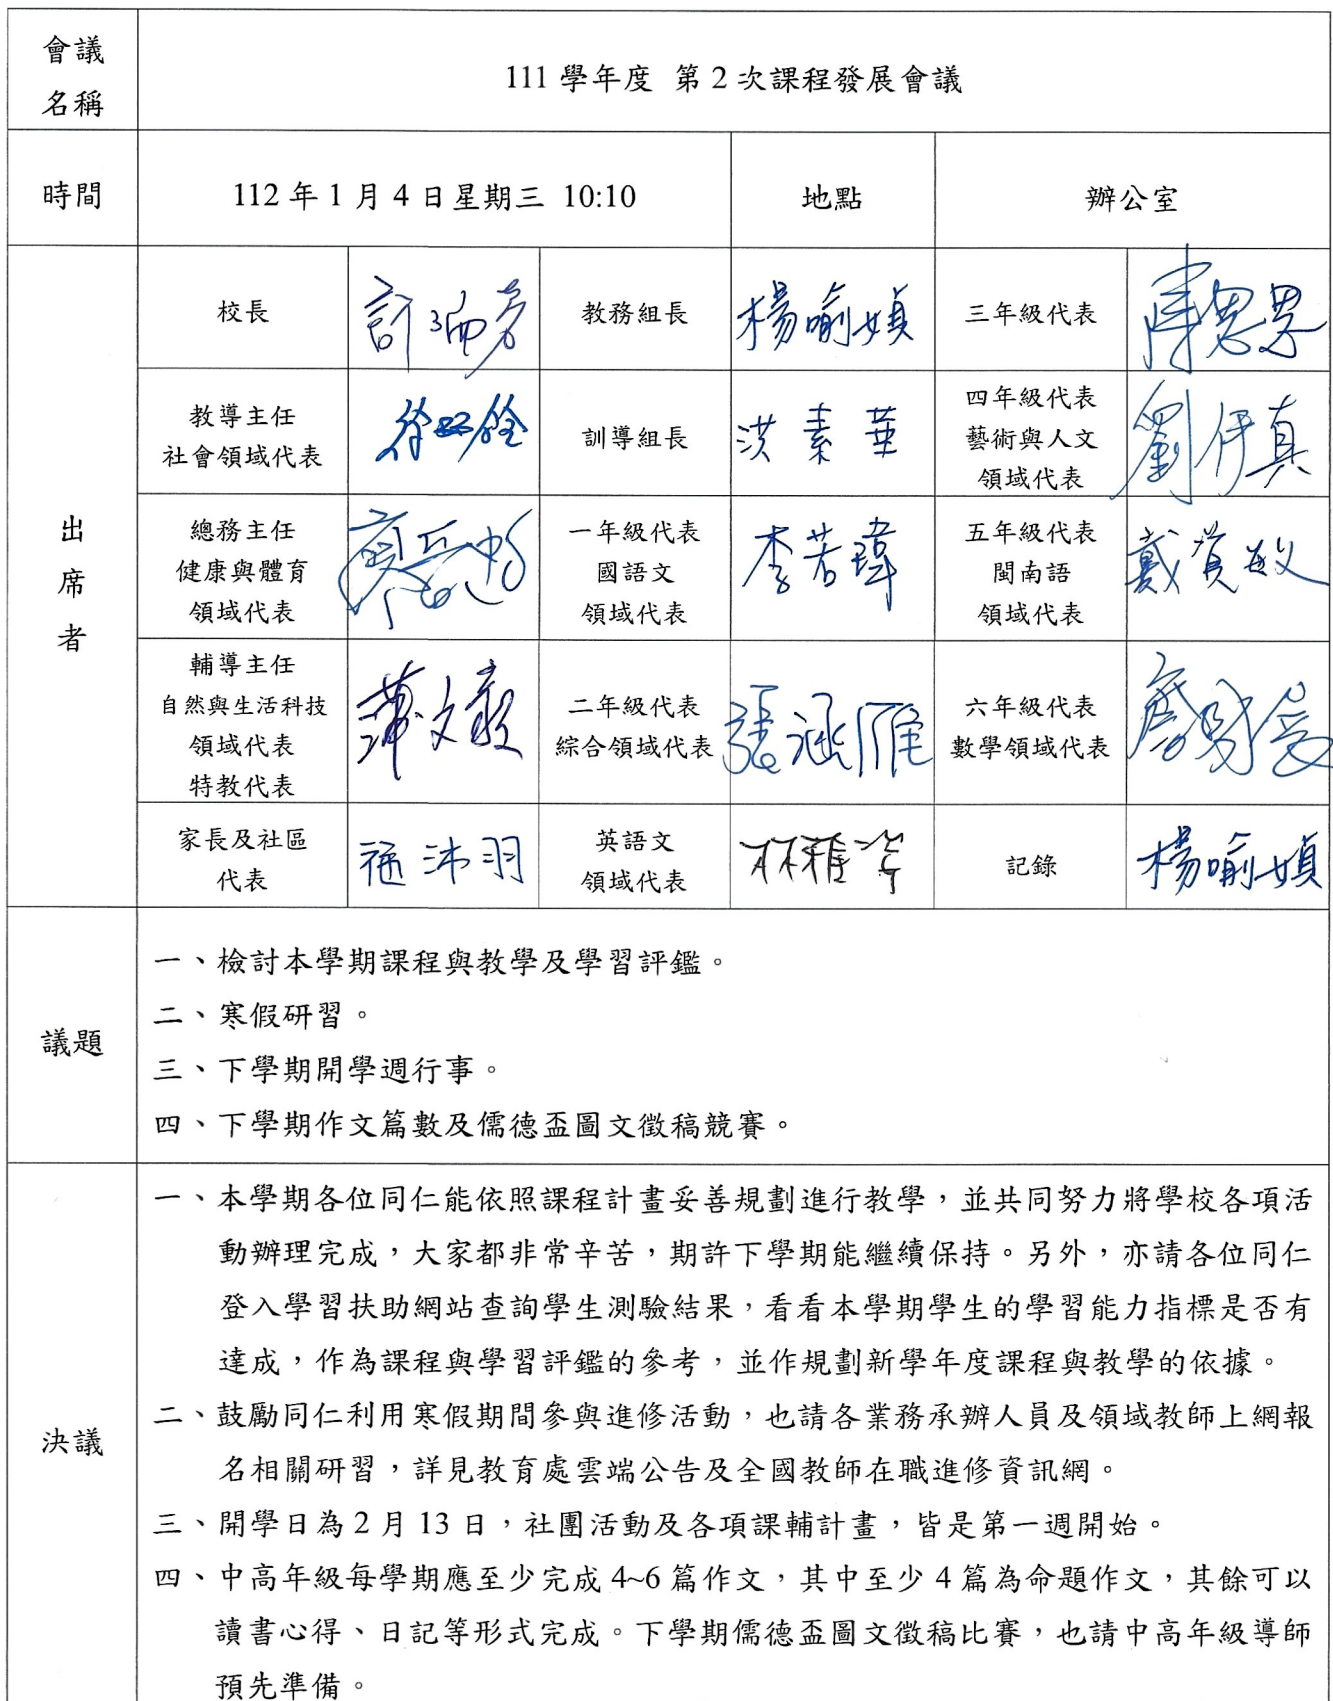 會議
名稱
111 學年度 第 2 次課程發展會議
時間
112 年 1 月 4 日星期三 10:10
地點
辦公室
出
席
者
校長
教務組長
楊喻媜
三年級代表
教導主任
社會領域代表
訓導組長
洪素華
四年級代表
藝術與人文
領域代表
劉伊真
總務主任
健康與體育
領域代表
一年級代表
國語文
領域代表
李若瑋
五年級代表
閩南語
領域代表
輔導主任
自然與生活科技
領域代表
特教代表
二年級代表
綜合領域代表
張涵雁
六年級代表
數學領域代表
家長及社區
代表
英語文
領域代表
記錄
楊喻媜
議題
一、檢討本學期課程與教學及學習評鑑。
二、寒假研習。
三、下學期開學週行事。
四、下學期作文篇數及儒德盃圖文徵稿競賽。
決議
一、本學期各位同仁能依照課程計畫妥善規劃進行教學，並共同努力將學校各項活
動辦理完成，大家都非常辛苦，期許下學期能繼續保持。另外，亦請各位同仁
登入學習扶助網站查詢學生測驗結果，看看本學期學生的學習能力指標是否有
達成，作為課程與學習評鑑的參考，並作規劃新學年度課程與教學的依據。
二、鼓勵同仁利用寒假期間參與進修活動，也請各業務承辦人員及領域教師上網報
名相關研習，詳見教育處雲端公告及全國教師在職進修資訊網。
三、開學日為 2 月 13 日，社團活動及各項課輔計畫，皆是第一週開始。
四、中高年級每學期應至少完成 4~6 篇作文，其中至少 4 篇為命題作文，其餘可以
讀書心得、日記等形式完成。下學期儒德盃圖文徵稿比賽，也請中高年級導師
預先準備。